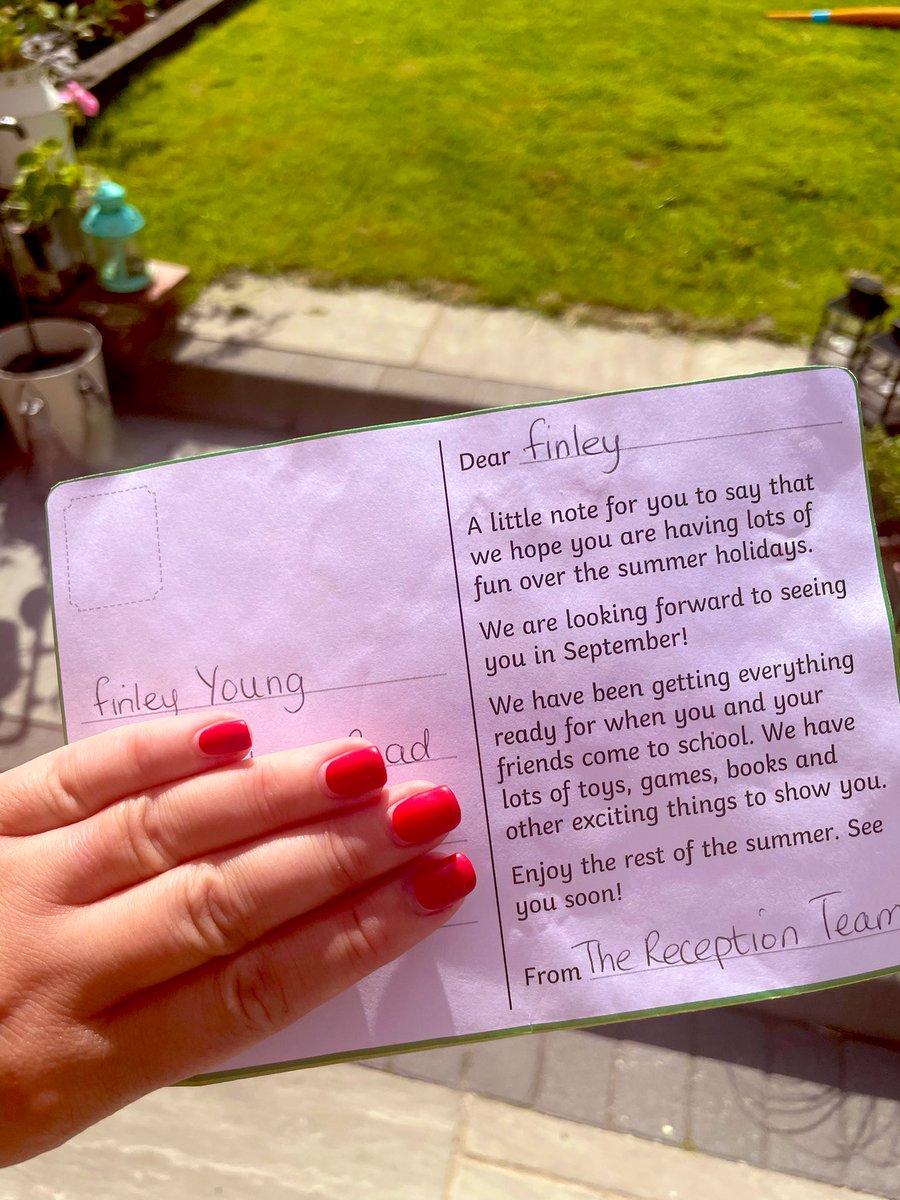 finley Young
Dear finley
A little note for you to say that
we hope you are having lots of
fun over the summer holidays.
We are looking forward to seeing
you in September!
We have been getting everything
ready for when you and your
friends come to school. We have
lots of toys, games, books and
other exciting things to show you.
Enjoy the rest of the summer. See
you soon!
From The Reception Team